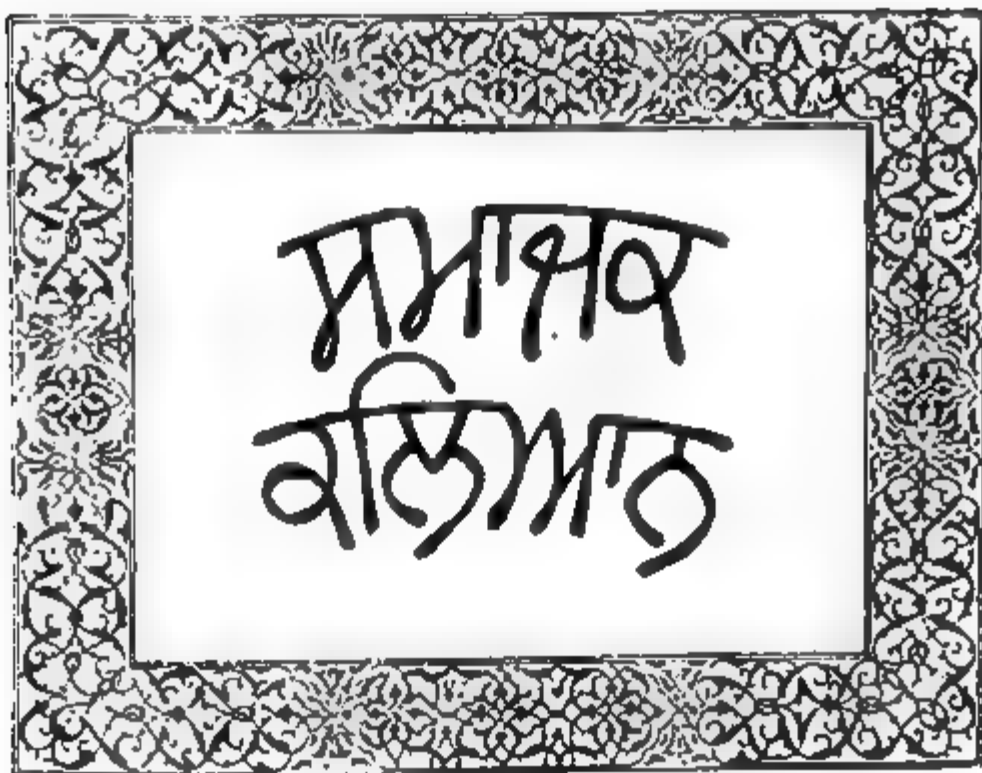 ਸਮਾਜਕ
ਕਲਿਆਨ